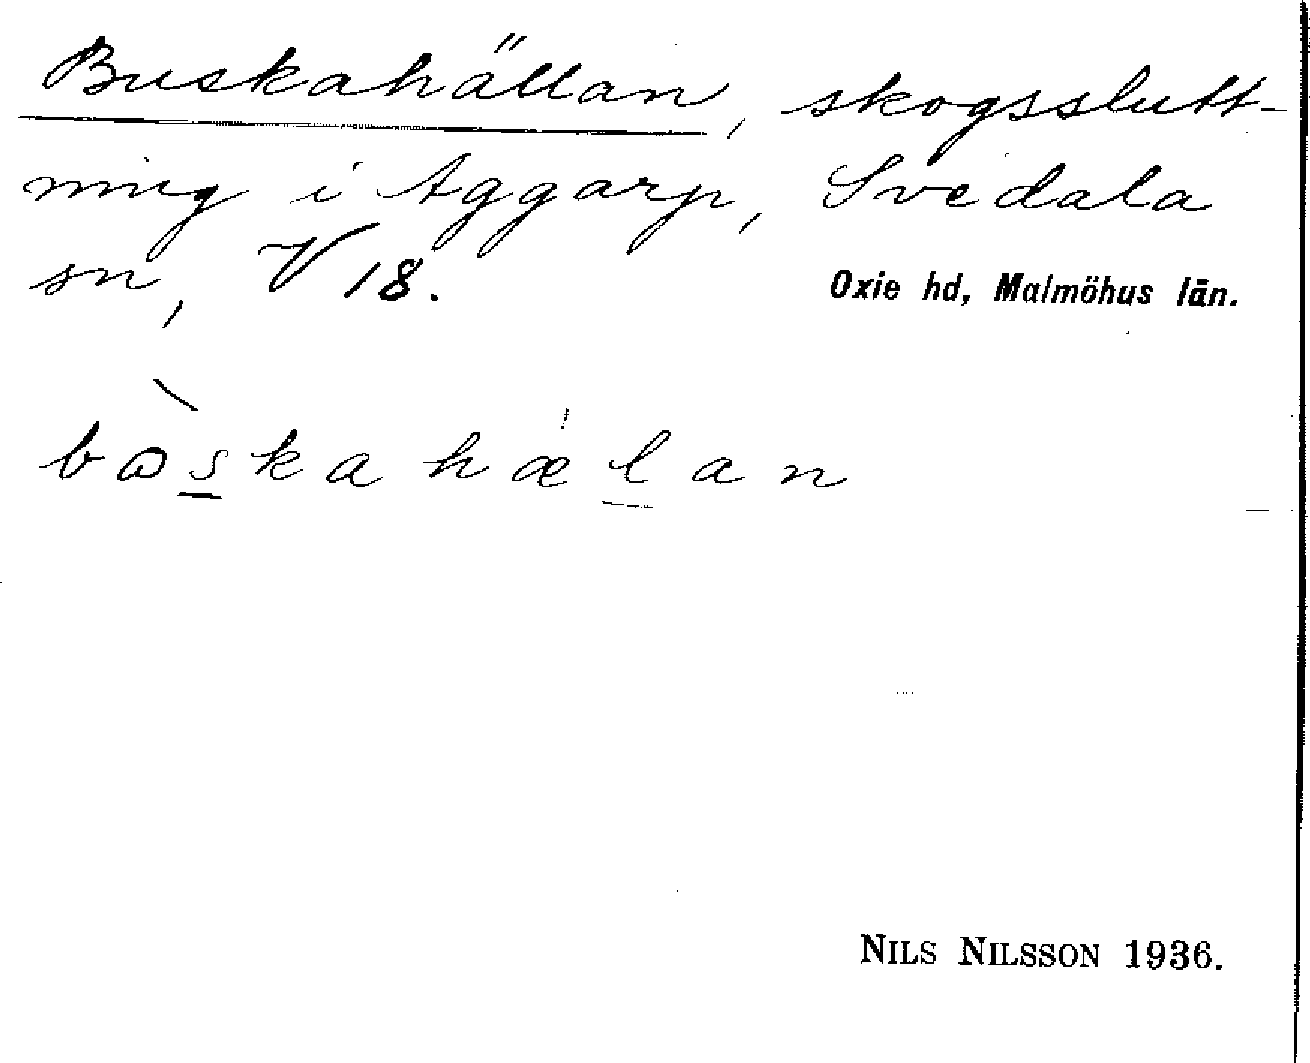 Buskahällan, skogsslutt-
ning i Aggarp, Svedala
sn, V 18.
Oxie hd, Malmöhus län.
bɷs̲kahæl̲an
NILS NILSSON 1936.